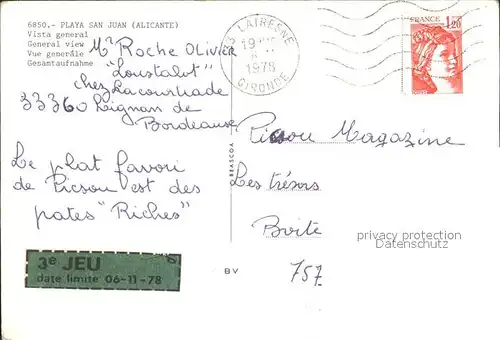 6850.- PLAYA SAN JUAN (ALICANTE)
Vista general
General view
Vue generále
Gesamtaufnahme
Mr Roche OLIVIER
"Loustalot"
chez Lacourtiade
33360 Lignan de
Bordeause
Le plat favori
de Picsou est des
pates "Riches"
3e JEU
date limite 06-11-78
33 LATRESNE
19
1978
GIRONDE
FRANCE
1,20
BEASCOA
BV
Picsou Magazine
Les trésors
Boite
757
privacy protection
Datenschutz